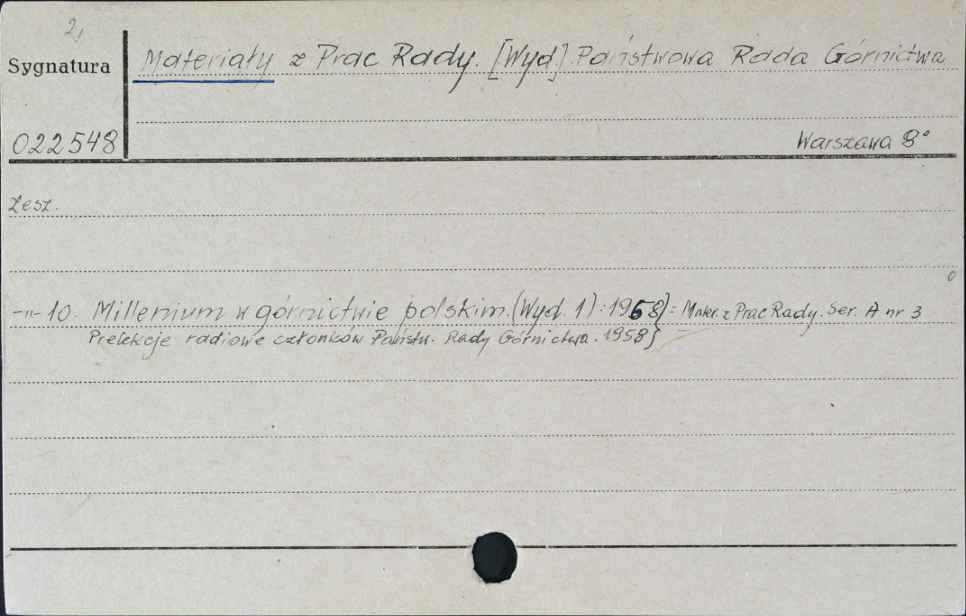 2,
Sygnatura
Materiały z Prac Rady. [Wyd.] Państwowa Rada Górnictwa
022548
Warszawa 8°
Zesz.
-"- 10. Millenium w górnictwie polskim. (Wyd. 1): 1968} = Mater. z Prac Rady. Ser. A nr 3
Prelekcje radiowe członków Państw. Rady Górnictwa. 1958}